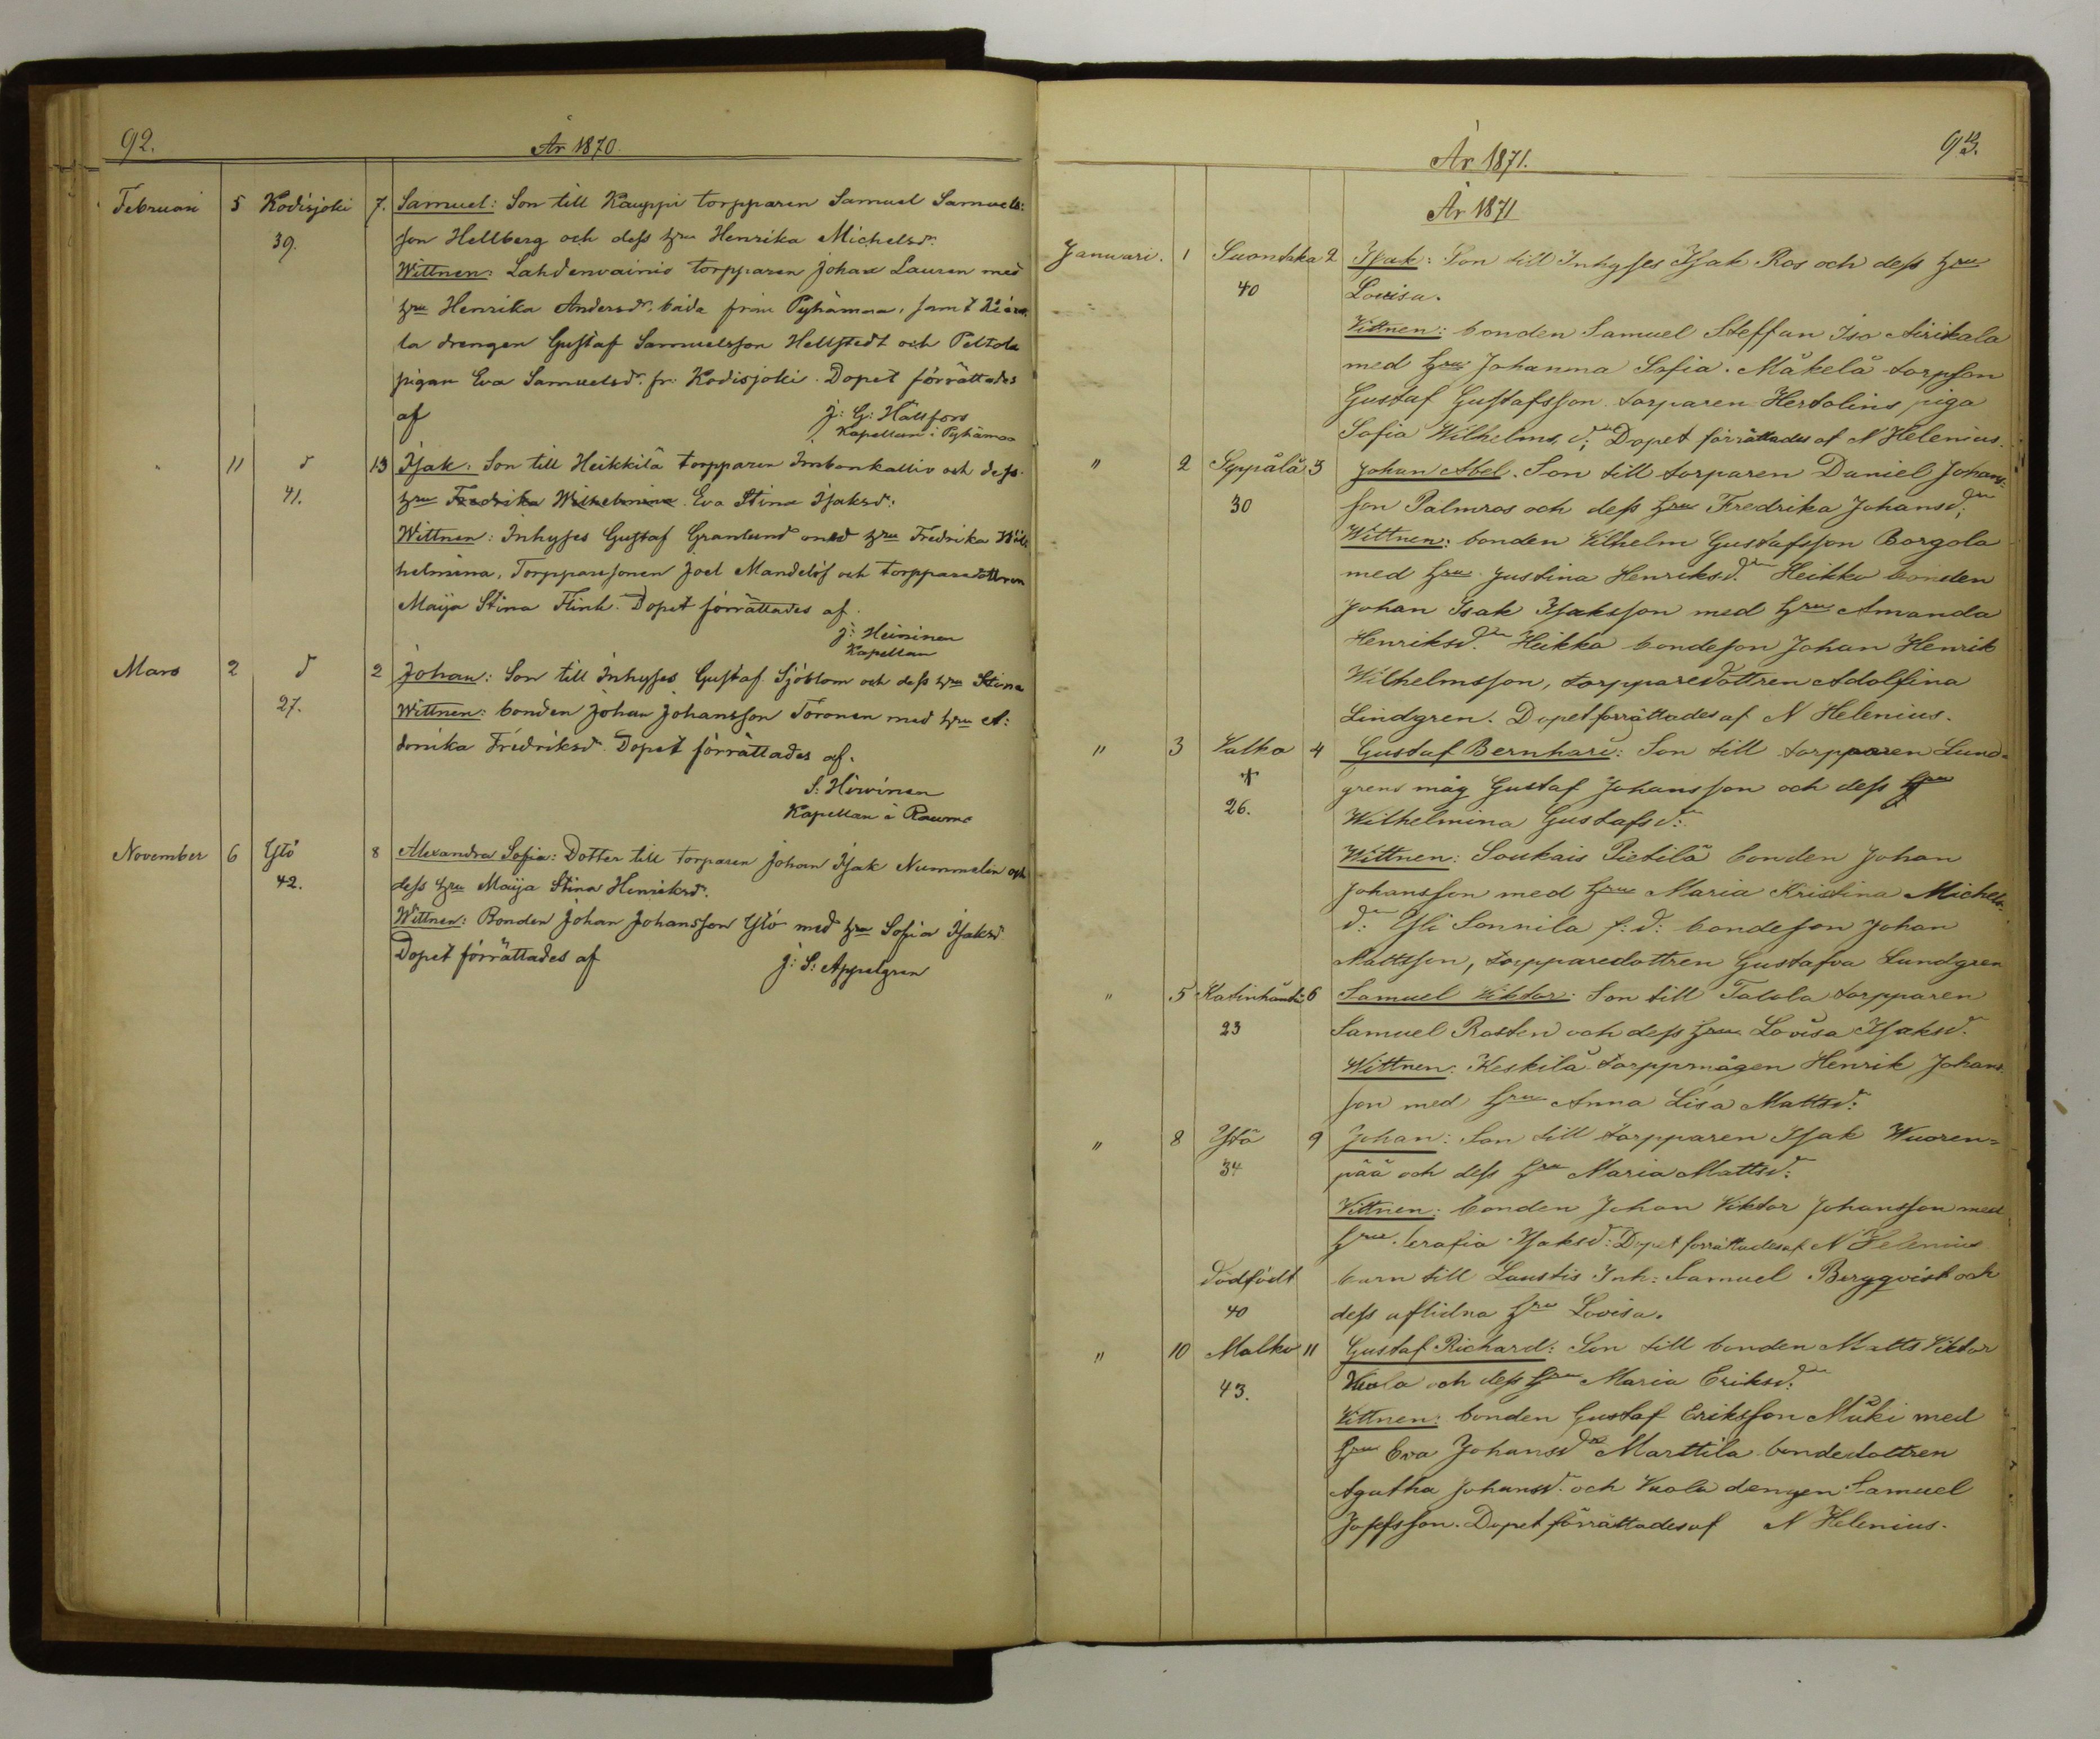 92.
År 1870.
Februari 5 Kodisjoki 7. Samuel: Son till Kauppi torpparen Samuel Samuels:
39. son Hellberg och dess hru Henrika Michelsdr.
Wittnen: Lahdenvainio torpparen Johan Lauren med
hru Henrika Andersdr. båda från Pyhämaa, samt
la drengen Gustaf Samuelsson Hellstedt och Peltola
pigan Eva Samuelsdr. fr. Kodisjoki. Dopet förrättades
af J: G: Hälsfors
Kapellan i Pyhämaa
" 11 d 13 Isak: Son till Heikkilä torpparen och dess
41. hru Fredrika Wilhelmina Eva Stina Isaksd:
Wittnen: Inhyses Gustaf Granlund med hru Fredrika Wil
helmina, Torpparesonen Joel Mandelöf och torpparedottren
Maija Stina Flink. Dopet förrättades af.
J: Heininen
Kapellan
Mars 2 d 2 Johan: Son till Inhyses Gustaf Sjöblom och dess hru Stina
27. Wittnen: bonden Johan Johansson Toronen med hru A:
Fredriksd. Dopet förrättades af.
S: Hirvinen
Kapellan i Raumo
November 6 Ytö 8 Alexandra Sofia: Dotter till torparen Johan Isak Nummelin och
42. dess hru Maija Stina Henriksd.
Wittnen: Bonden Johan Johansson Ytö med hru Sofia Isaksd
Dopet förrättades af J: S: Appelgren
93.
År 1871.
År 1871
Januari. 1 Suontaka 2 Isak: Son till Inhyses Isak Ros och dess hru
40 Lovisa.
Vittnen: bonden Samuel Steffan Iso Airikala
med hru Johanna Sofia. Mäkelä torpson
Gustaf Gustafsson. torparen Hertolins piga
Sofia Wilhelms, d; Dopet förrättades af N Helenius.
" 2 Seppälä 3 Johan Abel. Son till torparen Daniel Johans:
30 son Palmros och dess hru Fredrika Johansd;
Wittnen: bonden Vilhelm Gustafsson Borgola
med hru Justina Henriksd. Heikko bonden
Johan Isak Isaksson med hru Amanda
Henriksd. Heikka bondeson Johan Henrik
Wilhelmsson, torpparedottren Adolfina
Lindgren. Dopet förrättades af N Helenius.
" 3 Valko 4 Gustaf Bernhard: Son till torpparen Lund-
grens måg Gustaf Johansson och dess hru
26. Wilhelmina Gustafsd:
Wittnen: Soukais Pietilä bonden Johan
Johansson med hru Maria Kristina Michels.
d: Yli Sonnila f: d: bondeson Johan
Mattsson, torpparedottren Gustafva Lundgren
" 5 Katinhänta 6 Samuel Viktor: Son till Talola torpparen
23 Samuel Rosten och dess hru Lovisa Isaksd.
Wittnen: Keskilä torppmågen Henrik Johans
son med hru Anna Lisa Mattsd:
" 8 Ytö 9 Johan: Son till torpparen Isak Wuoren=
34 pää och dess hru Maria Mattsd:
Vittnen: bonden Johan Viktor Johansson med
hru. Serafia Isaksd: Dopet förrättades af N Helenius
dödfödt barn till Laustis Inh: Samuel Bergqvist och
40 dess aflidna hru Lovisa.
" 10 Malko 11 Gustaf Richard: Son till bonden Matts Viktor
43. Vuola och dess hru Maria Eriksd:
Vittnen: bonden Gustaf Eriksson Mäki med
hru Eva Johansd Marttila bondedottren
Agatha Johansd. och Vuola dengen Samuel
Josefsson. Dopet förrättades af N Helenius.